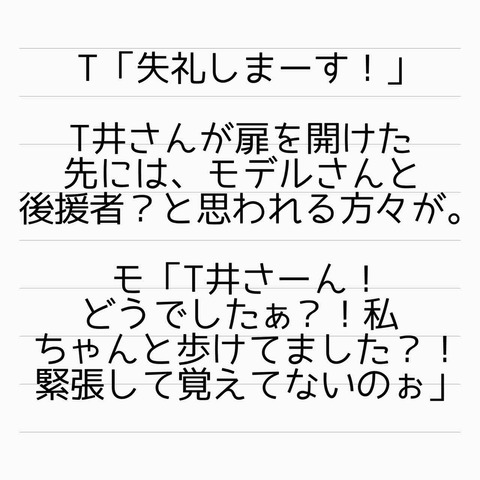 T「失礼しまーす！」
T井さんが扉を開けた
先には、モデルさんと
後援者？と思われる方々が。
モ「T井さーん！
どうでしたぁ？！私
ちゃんと歩けてました？！
緊張して覚えてないのぉ」